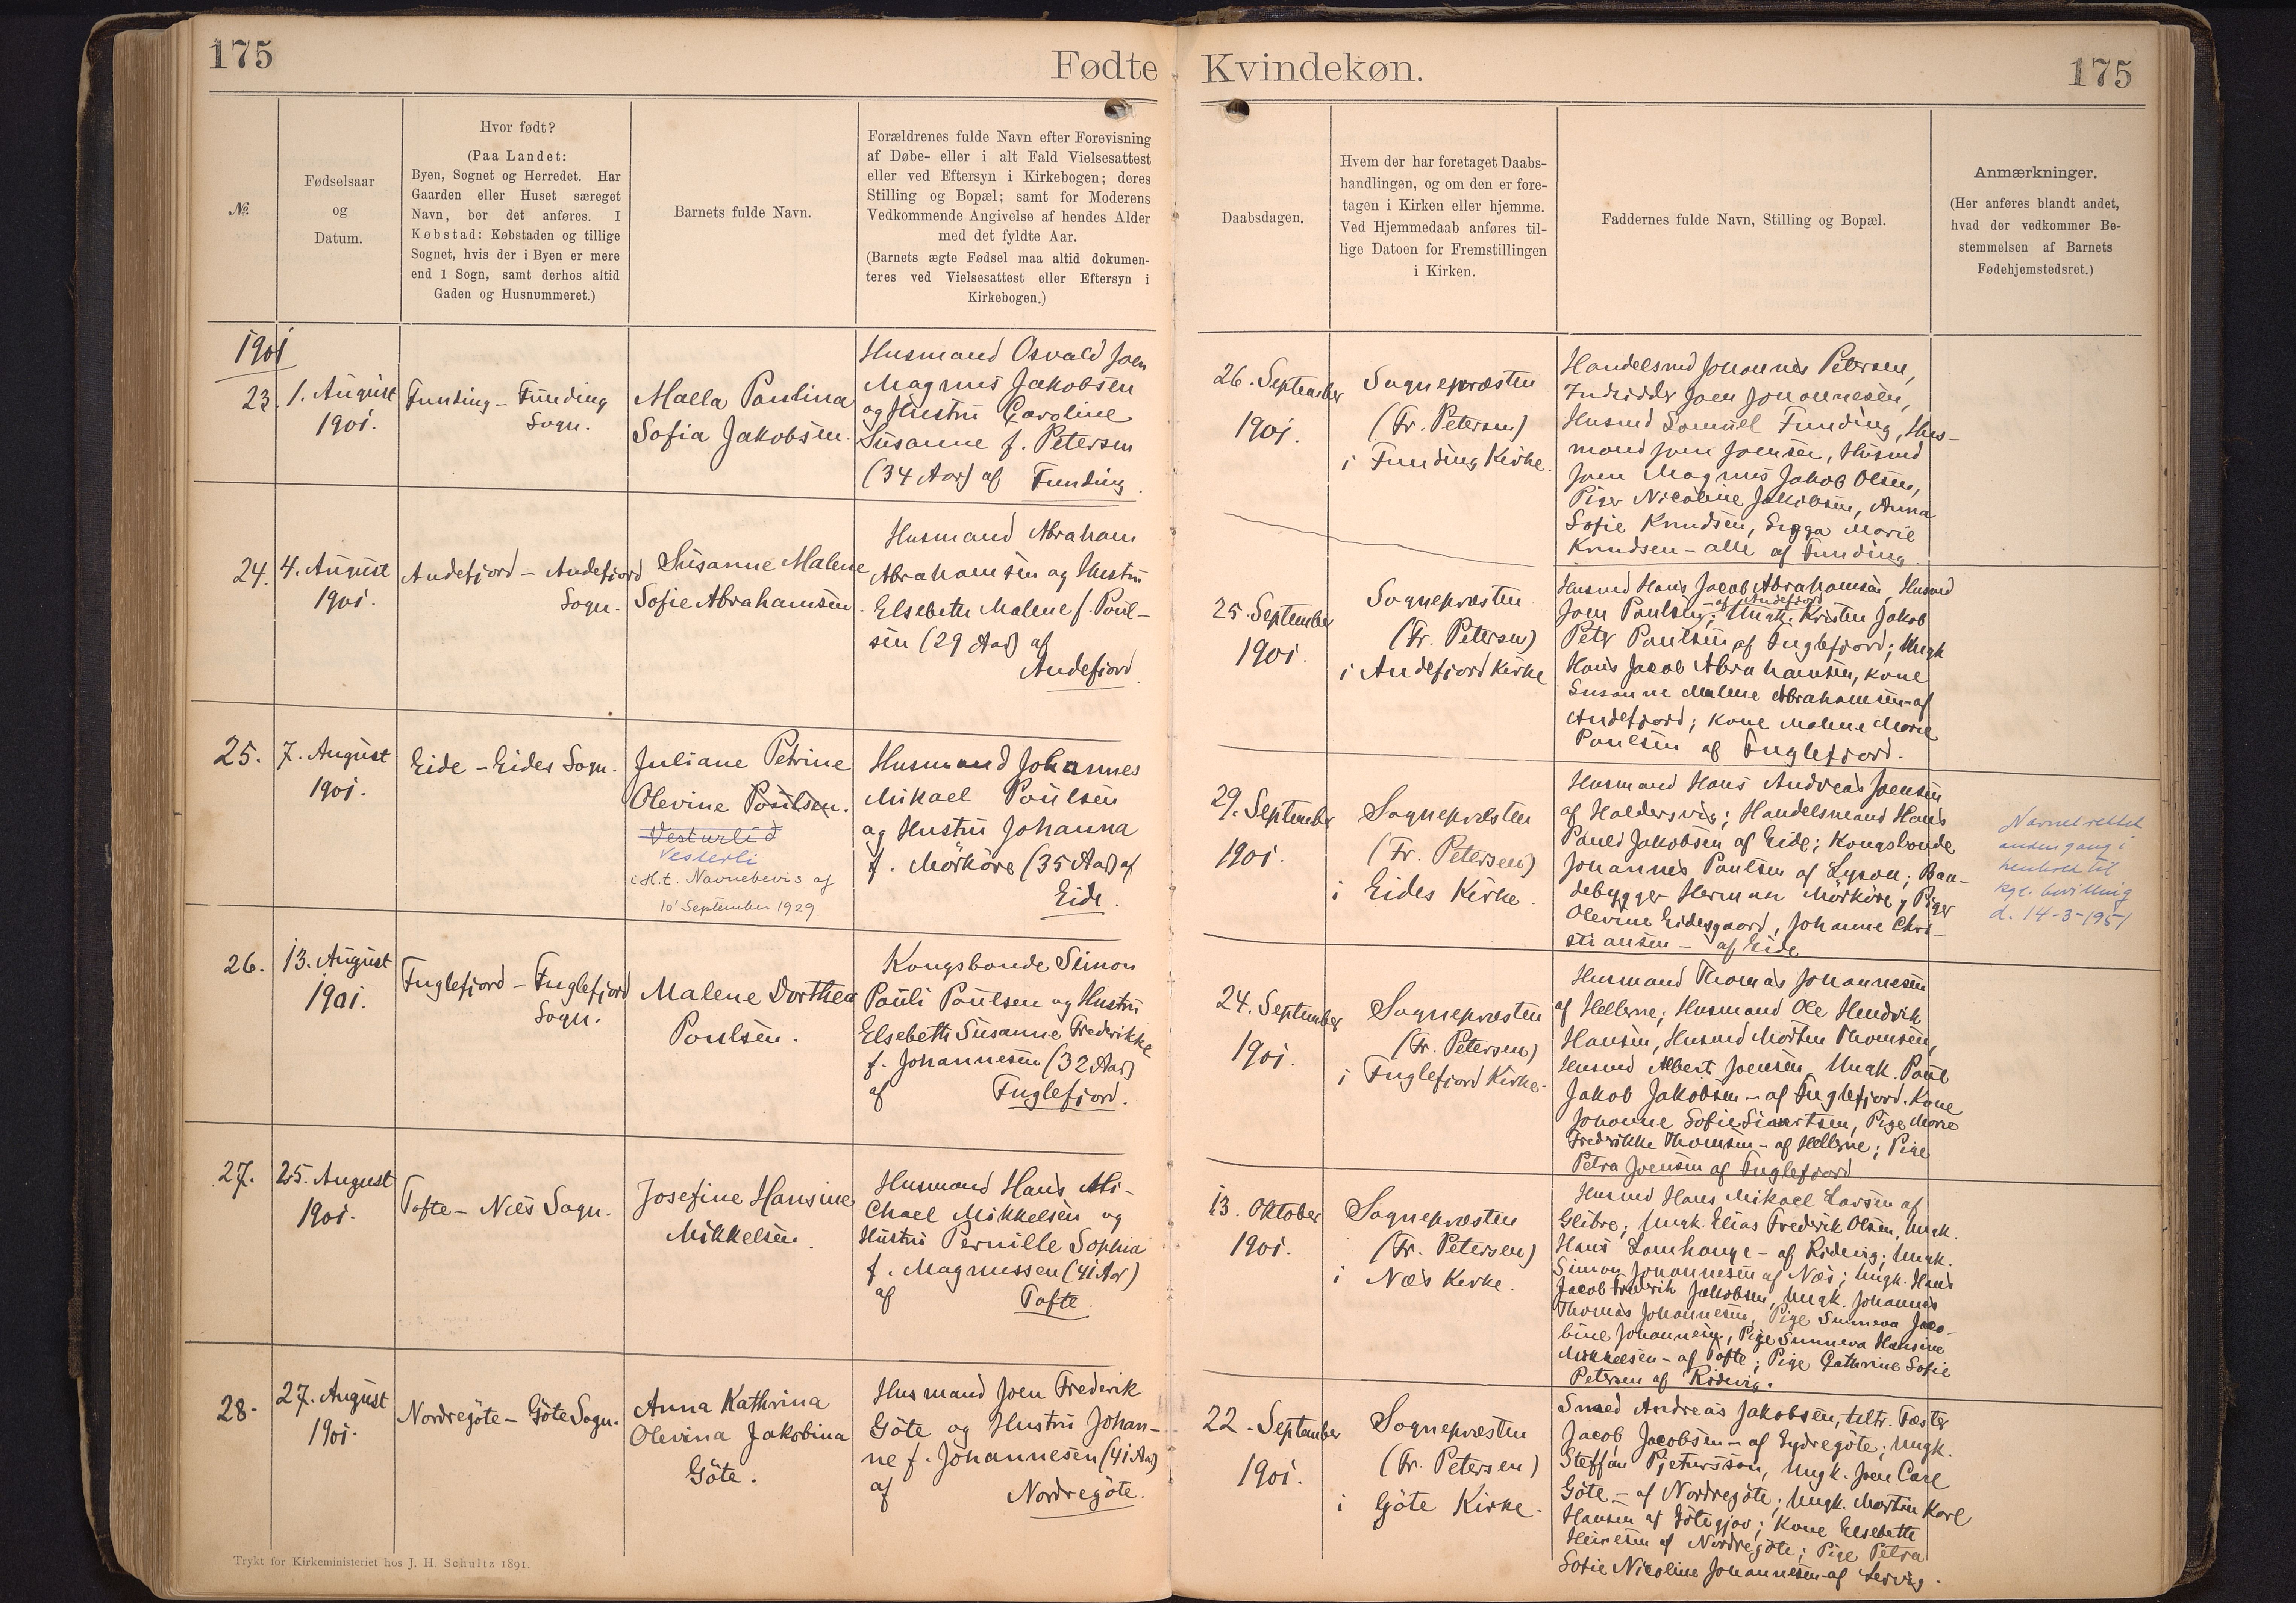 175
Fødte
Kvindekøn.
175
№.
Fødselsaar
og
Datum.
Hvor født?
(Paa Landet:
Byen, Sognet og Herredet. Har
Gaarden eller Huset særeget
Navn, bør det anføres. I
Købstad: Købstaden og tillige
Sognet, hvis der i Byen er mere
end 1 Sogn, samt derhos altid
Gaden og Husnummeret.)
Barnets fulde Navn.
Forældrenes fulde Navn efter Forevisning
af Døbe- eller i alt Fald Vielsesattest
eller ved Eftersyn i Kirkebogen; deres
Stilling og Bopæl; samt for Moderens
Vedkommende Angivelse af hendes Alder
med det fyldte Aar.
(Barnets ægte Fødsel maa altid dokumen-
teres ved Vielsesattest eller Eftersyn i
Kirkebogen.)
Daabsdagen.
Hvem der har foretaget Daabs-
handlingen, og om den er fore-
tagen i Kirken eller hjemme.
Ved Hjemmedaab anføres til-
lige Datoen for Fremstillingen
i Kirken.
Faddernes fulde Navn, Stilling og Bopæl.
Anmærkninger.
(Her anføres blandt andet,
hvad der vedkommer Be-
stemmelsen af Barnets
Fødehjemstedsret.)
1901
23.
1. August
1901.
Funding – Funding
Sogn.
Malla Paulina
Sofia Jakobsen.
Husmand Osvald Joen
Magnus Jakobsen
og Hustru Caroline
Susanne f. Petersen
(34 Aar) af Funding.
26. September
1901.
Sognepræsten
(Fr. Petersen)
i Funding Kirke.
Handelsmd Johannes Petersen,
Joen Johannesen,
Husmd Samuel Funding, Hus-
mand Joen Joensen, Husmd
Joen Magnus Jakob Olsen,
Piger Nicoline Jakobsen, Anna
Sofie Knudsen, Marie
Knudsen – alle af Funding.
24.
4. August
1901.
Andefjord – Andefjord
Sogn.
Susanne Malene
Sofie Abrahamsen.
Husmand Abraham
Abrahamsen og Hustru
Elsebeth Malene f. Poul-
sen (29 Aar) af
Andefjord.
25. September
1901.
Sognepræsten
(Fr. Petersen)
i Andefjord Kirke
Husmd Hans Jacob Abrahamsen, Husmd
Joen Poulsen, – af Andefjord; Ungk. Kristen Jakob
Peter Poulsen af Fuglefjord; Ungk
Hans Jacob Abrahamsen, Kone
Susanne Malene Abrahamsen – af
Andefjord; Kone Malene Marie
Poulsen af Fuglefjord.
25.
7. August
1901.
Eide – Eides Sogn.
Juliane Petrine
Olevine Poulsen.
Vesturlid
Vesterli
i H.t. Navnebevis af
10' September 1929.
Husmand Johannes
Mikael Poulsen
og Hustru Johanna
f. Mörköre (35 Aar) af
Eide.
29. September
1901.
Sognepræsten
(Fr. Petersen)
i Eides Kirke.
Husmand Hans Andreas Joensen
af Haldersvig; Handelsmand Hans
Pauli Jakobsen af Eide; Kongsbonde
Johannes Poulsen af; Baa-
debygger Herman Mörköre, Piger
Olevine Eidesgaard, Johanne Chri-
stiansen – af Eide
Navnet rettet
anden gang i
henhold til
kgl. bevilling
d. 14-3-1951
26.
13. August
1901.
Fuglefjord – Fuglefjord
Sogn.
Malene Dorthea
Poulsen.
Kongsbonde Simon
Pauli Poulsen og Hustru
Elsebeth Susanne Frederikke
f. Johannesen (32 Aar)
af Fuglefjord.
24. September
1901.
Sognepræsten
(Fr. Petersen)
i Fuglefjord Kirke.
Husmand Thomas Johannesen
af Hellerne; Husmand Ole Hendrik
Hansen, Husmd Morten Thomsen,
Husmd Albert Joensen, Ungk. Poul
Jakob Jakobsen – af Fuglefjord. Kone
Johanne Sofie Sivertsen, Pige Marie
Frederikke Thomsen – af Hellerne; Pige
Petra Joensen af Fuglefjord
27.
25. August
1901.
Tofte – Næs Sogn.
Josefine Hansine
Mikkelsen.
Husmand Hans Mi-
chael Mikkelsen og
Hustru Pernille Sophia
f. Magnussen (41 Aar)
af Tofte.
13. Oktober
1901.
Sognepræsten
(Fr. Petersen)
i Næs Kirke.
Husmd Hans Mikael Larsen af
Glibre; Ungk. Elias Frederik Olsen, Ungk.
Hans Lamhauge – af Ridevig; Ungk.
Simon Johannesen af Næs; Ungk. Hans
Jacob Frederik Jakobsen, Ungk. Johannes
Thomas Johannesen, Pige Sunneva Jaco-
bine Johannesen, Pige Sunneva Hansine
Mikkelsen – af Tofte; Pige Cathrine Sofie
Petersen af Ridevig.
28.
27. August
1901.
Nordregöte – Göte Sogn.
Anna Kathrina
Olevina Jakobina
Göte.
Husmand Joen Frederik
Göte og Hustru Johan-
ne f. Johannesen (41 Aar)
af Nordregöte.
22. September
1901.
Sognepræsten
(Fr. Petersen)
i Göte Kirke.
Smed Andreas Jakobsen, Fæster
Jacob Jacobsen – af Sydregöte; Ungk.
Steffan Pjetursson, Ungk. Joen Carl
Göte – af Nordregöte; Ungk. Morten Karl
Hansen af Götegjov; Kone Elsebeth
Heinesen af Nordregöte; Pige Petra
Sofie Nicoline Johannesen af Lervig.
Trykt for Kirkeministeriet hos J. H. Schultz 1891.